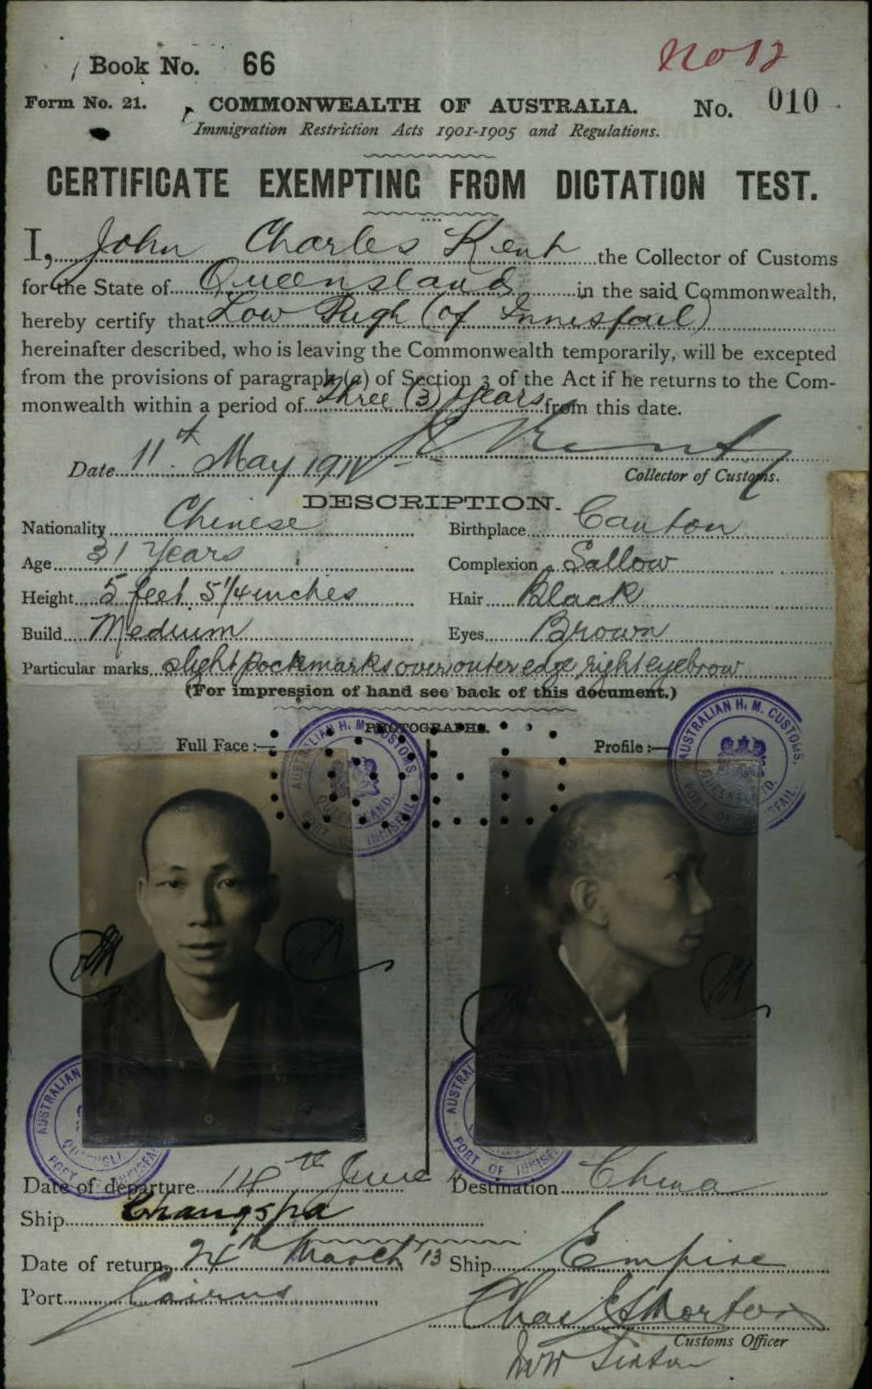 Book No. 66
No 12
Form No. 21.
COMMONWEALTH OF AUSTRALIA.
No. 010
Immigration Restriction Acts 1901-1905 and Regulations.
CERTIFICATE EXEMPTING FROM DICTATION TEST.
I, John Charles Kent the Collector of Customs
for the State of Queensland in the said Commonwealth,
hereby certify that Low (of Innisfail)
hereinafter described, who is leaving the Commonwealth temporarily, will be excepted
from the provisions of paragraph (a) of Section 3 of the Act if he returns to the Com-
monwealth within a period of three (3) years from this date.
Kent
Date 11th May
Collector of Customs.
DESCRIPTION.
Nationality Chinese Birthplace Canton
Age 31 Years Complexion Sallow
Height 5 feet 5 1/4 inches Hair Black
Build Medium Eyes Brown
Particular marks slight pockmarks over outer edge right eyebrow
(For impression of hand see back of this document.)
PHOTOGRAPHS.
Full Face:— Profile:—
AUSTRALIAN H. M. CUSTOMS. QUEENSLAND. PORT OF INNISFAIL
AUSTRALIAN H. M. CUSTOMS. PORT OF INNISFAIL
AUSTRALIAN PORT OF INNISFAIL
PORT OF INNISFAIL
Date of departure 14th June Destination China
Ship Changsha
Date of return 24th March 13 Ship Empire
Port Cairns
Customs Officer